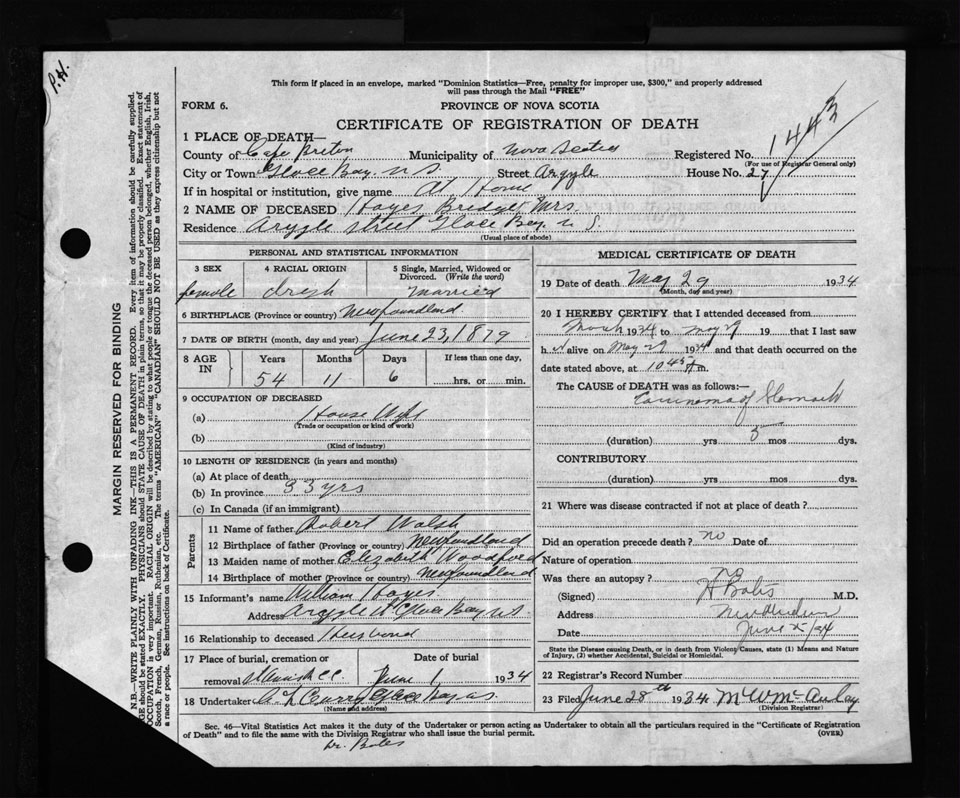 P.H.
This form if placed in an envelope, marked "Dominion Statistics—Free, penalty for improper use, $300," and properly addressed
will pass through the Mail "FREE"
FORM 6.
PROVINCE OF NOVA SCOTIA
CERTIFICATE OF REGISTRATION OF DEATH
1443
1 PLACE OF DEATH—
County of Cape Breton Municipality of Nova Scotia Registered No.
(For use of Registrar General only)
City or Town Glace Bay. N S. Street Argyle House No. 27
If in hospital or institution, give name At Home
2 NAME OF DECEASED Hayes Bridget Mrs.
Residence Argyle street Glace Bay. N S.
(Usual place of abode)
PERSONAL AND STATISTICAL INFORMATION
3 SEX 4 RACIAL ORIGIN 5 Single, Married, Widowed or Divorced. (Write the word)
female Irish married
6 BIRTHPLACE (Province or country) Newfoundland.
7 DATE OF BIRTH (month, day and year) June 23, 1879
8 AGE IN Years Months Days If less than one day,
54 11 6 hrs. or min.
9 OCCUPATION OF DECEASED
(a) House Wife
(Trade or occupation or kind of work)
(b)
(Kind of industry)
10 LENGTH OF RESIDENCE (in years and months)
(a) At place of death
(b) In province 33 yrs
(c) In Canada (if an immigrant)
PARENTS
11 Name of father Robert Walsh
12 Birthplace of father (Province or country) Newfoundland
13 Maiden name of mother Elizabeth Woodford
14 Birthplace of mother (Province or country) Newfoundland
15 Informant's name William Hayes
Address Argyle st Glace Bay N.S.
16 Relationship to deceased Husband
17 Place of burial, cremation or removal Date of burial
June 1 1934
18 Undertaker Curry Glace Bay N.S.
(Name and address)
MEDICAL CERTIFICATE OF DEATH
19 Date of death May 29 1934
(Month, day and year)
20 I HEREBY CERTIFY that I attended deceased from
March 1934 to May 29 19 that I last saw
h alive on May 29 1934 and that death occurred on the
date stated above, at 1045 m.
The CAUSE OF DEATH was as follows:—
Carcinoma of Stomach
(duration) yrs 5 mos dys.
CONTRIBUTORY
(duration) yrs mos dys.
21 Where was disease contracted if not at place of death?
Did an operation precede death? no Date of
Nature of operation
Was there an autopsy? no
(Signed) M.D.
Address
Date June
State the Disease causing Death, or in death from Violent Causes, state (1) Means and
Nature of Injury, (2) whether Accidental, Suicidal or Homicidal.
22 Registrar's Record Number
23 Filed June 28th 1934 M W McAulay
(Division Registrar)
Sec. 46—Vital Statistics Act makes it the duty of the Undertaker or person acting as Undertaker to obtain all the particulars required in the "Certificate of Registration
of Death" and to file the same with the Division Registrar who shall issue the burial permit.
(OVER)
MARGIN RESERVED FOR BINDING
N.B.—WRITE PLAINLY WITH UNFADING INK—THIS IS A PERMANENT RECORD. Every item of information should be carefully supplied.
AGE should be stated EXACTLY. PHYSICIANS should STATE CAUSE OF DEATH in plain terms, so that it may be properly classified. Exact statement of
OCCUPATION is very important. RACIAL ORIGIN will be described by stating to what people or tongue the deceased person belonged, whether English, Irish,
Scotch, French, German, Russian, Ruthenian, etc. The terms "AMERICAN" or "CANADIAN" SHOULD NOT BE USED as they express citizenship but not
a race or people. See instructions on back of Certificate.